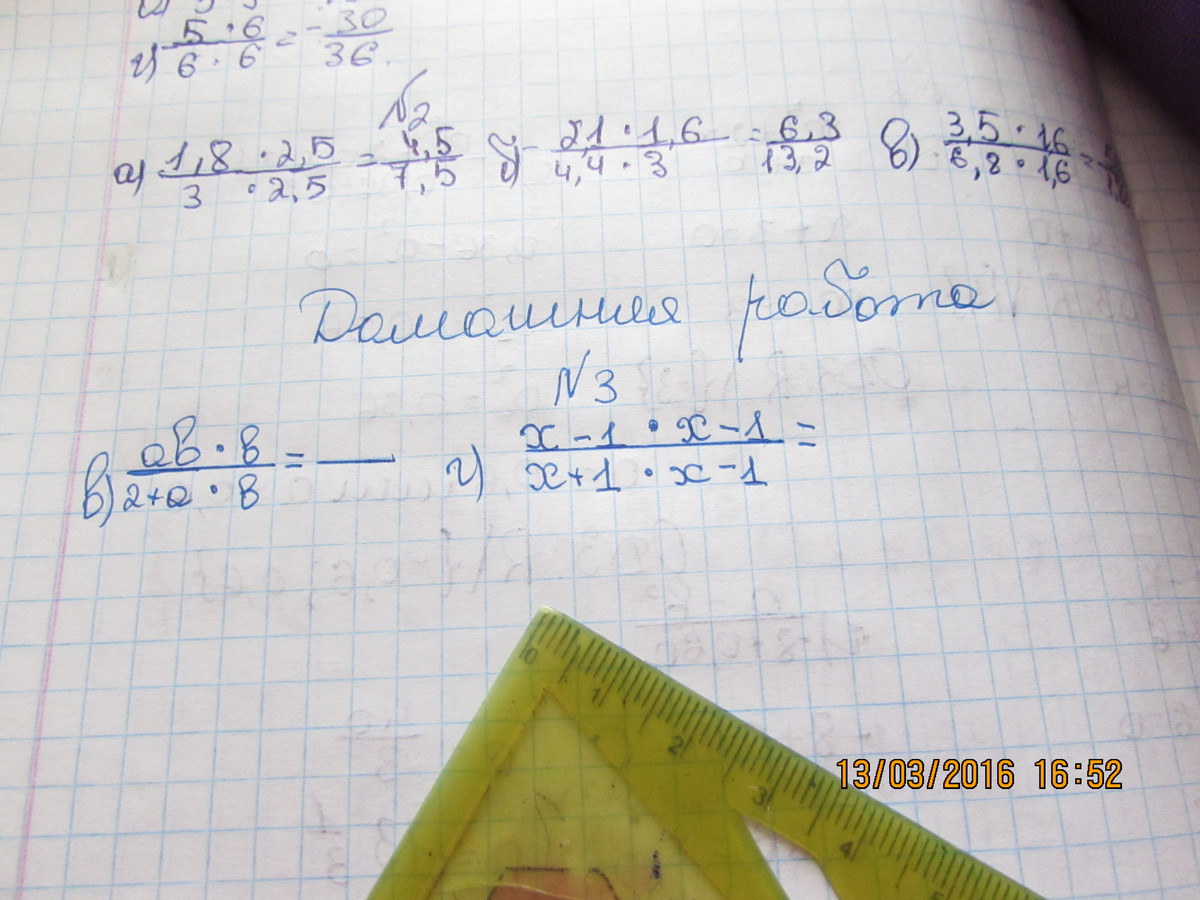 г) 5 · 6 / 6 · 6 = - 30 / 36.
N2
а) 1,8 · 2,5 / 3 · 2,5 = 4,5 / 7,5 б) - 2,1 · 1,6 / 4,4 · 3 = 6,3 / 13,2 в) 3,5 · 1,6 / 6,8 · 1,6 =
Домашняя работа
N 3
в) ab · b / 2+a · b = — г) x - 1 · x - 1 / x + 1 · x - 1 =
0 1 2 3 4 5
1
13/03/2016 16:52